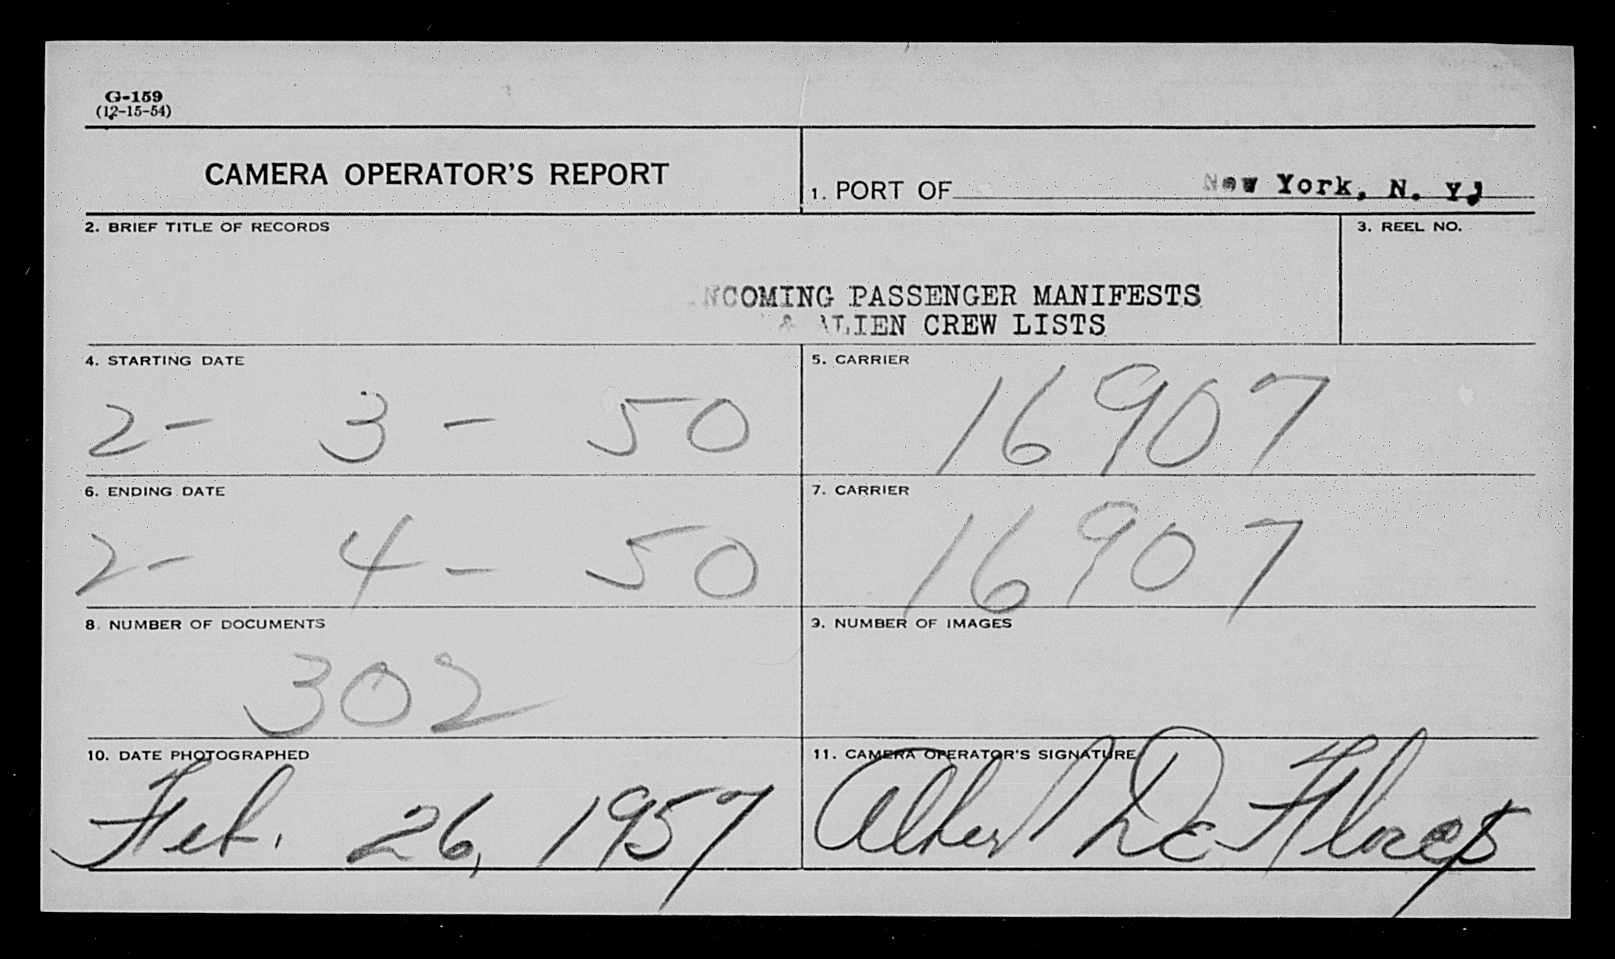 G-159
(12-15-54)
CAMERA OPERATOR'S REPORT
1. PORT OF New York, N. Y.
2. BRIEF TITLE OF RECORDS
3. REEL NO.
INCOMING PASSENGER MANIFESTS
& ALIEN CREW LISTS
4. STARTING DATE
2- 3- 50
5. CARRIER
16907
6. ENDING DATE
2- 4- 50
7. CARRIER
16907
8. NUMBER OF DOCUMENTS
302
9. NUMBER OF IMAGES
10. DATE PHOTOGRAPHED
Feb. 26, 1957
11. CAMERA OPERATOR'S SIGNATURE
Albert De